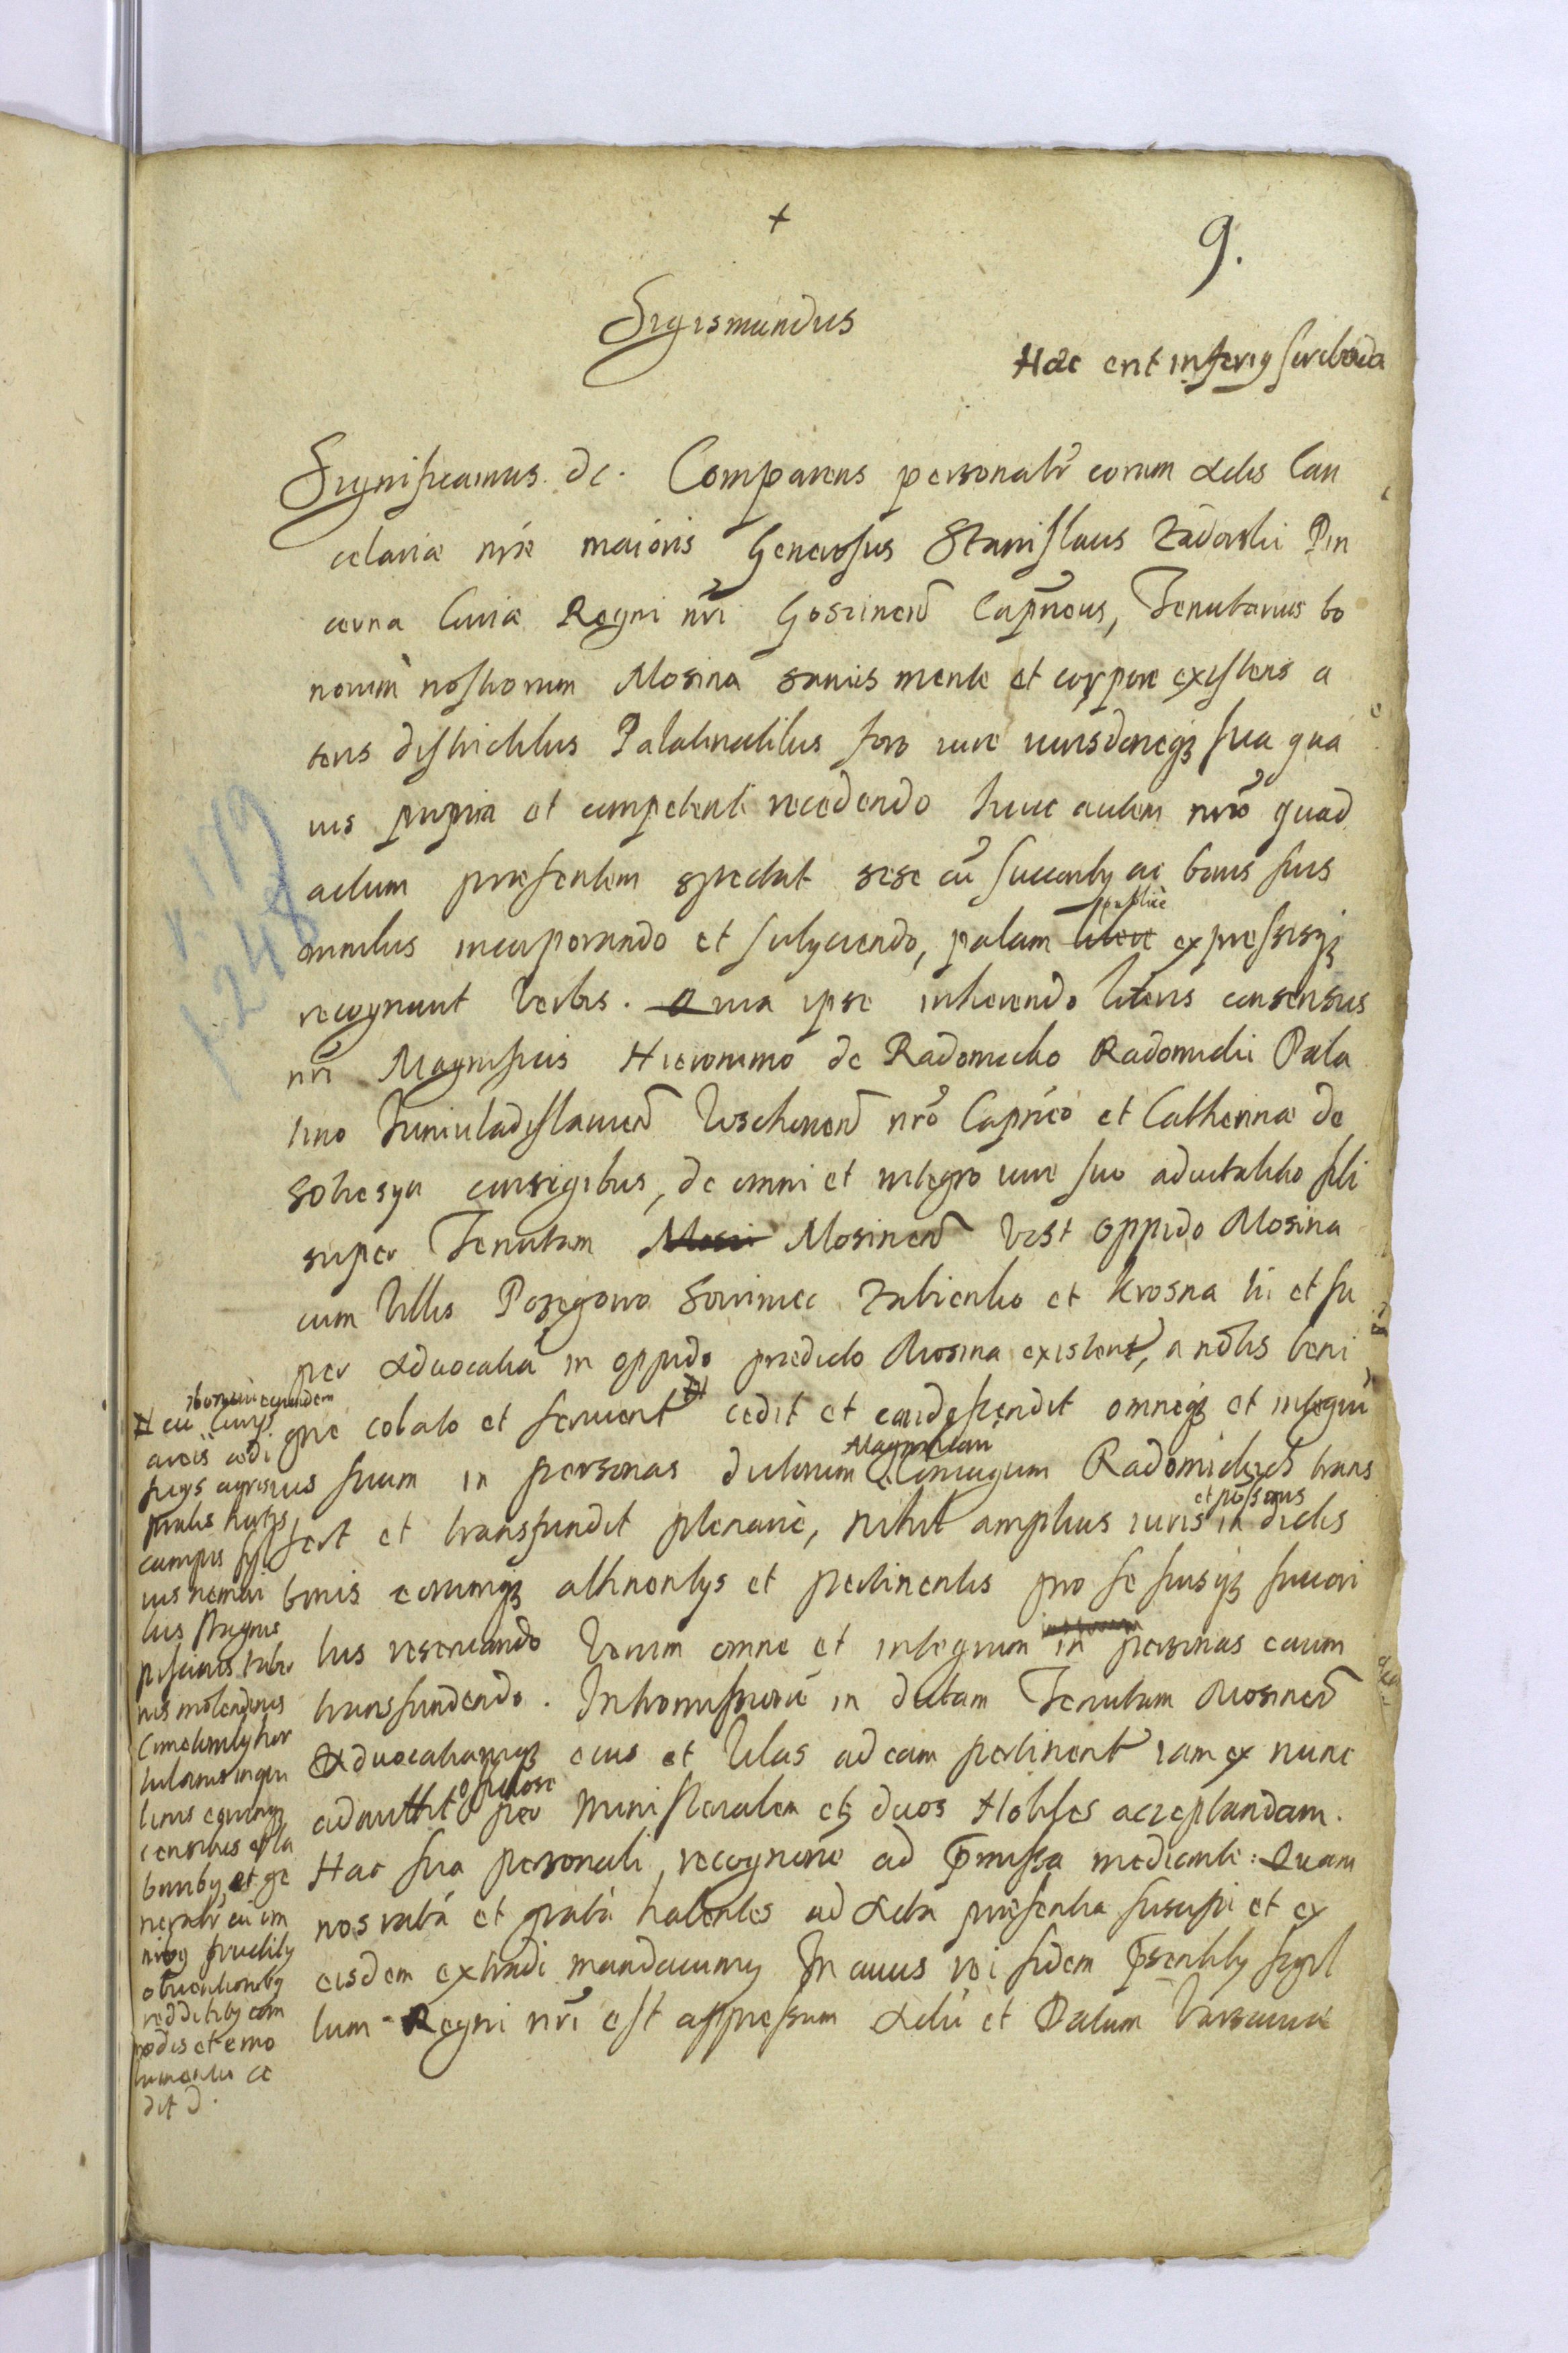 +
9.
Sigismundus
Hac erit inferius scribenda
Significamus &c. Comparens personalr coram Actis Can
cellariae nrae maioris Generosus Stanislaus Zadorski Pin
cerna Curiae Regni nri Gostinen Capneus, Tenutarius bo
norum nostrorum Mosina sanus mente et corpore existens a
teris districtibus Palatinatibus foro iure iurisdoneq sua qua
uis propria et competenti recedendo huic autem nro quad
actum praesentem spectat sese cu successorib ac bonis suis
omnibus incorporando et subyciendo, palam libere publice expressisq
recognouit verbis. Quia ipse inherendo literis consensus
nri Magnificis Hieronimo de Radomicko Radomicki Pala
tino Iuniuladislauien Vschouen nro Capneo et Catherinae de
Sobesyn coniugibus, de omni et integro iure suo aduitalitio sibi
super Tenutam Mosi Mosinen vest oppido Mosina
cum Villis Pozegowo Sowiniec Zabienko et Krosna ti et su
per Aduocatia in oppido praedicto Mosina existent, a nobis beni
gne collato et seruient cedit et condescendit omneq et integru
ius suum in personas dictorum Magnificoru Coniugum Radomickich trans
fert et transfundit plenarie, nihil amplius iuris et possessionis in dictis
bonis eorumq attinentys et pertinentis pro se suisq succesori
bus reseruando verum omne et integrum in personas earum
transfundendo. Intromissione in dictam Tenutam Mosinen
Aduocatiamq eius et Villas ad eam pertinent iam ex nunc
admittit officiose per Ministerialem et duos Nobiles acceptandam.
Hac sua personali recognione ad Pmissa mediante: Quam
nos rata et grata habentes ad Acta praesentia suscipi et ex
eisdem extradi mandauimus In cuius rei fidem Psentib sigil
lum Regni nri est appressum Actu et Datum Varsauiae
H cu curys
iborum eorundem
areis aedi
ficys agris
pratis hortis
campis syl
uis nemori
bus stagnis
piscinis taber
nis molendinis
Cmetonib hor
tulanis inqui
linis eorumq
censibus et la
borib, et ge
neralr cu om
nibus fructib
obuentionib
redditib com
modis et emo
lumentis ce
dit &.
179
1248